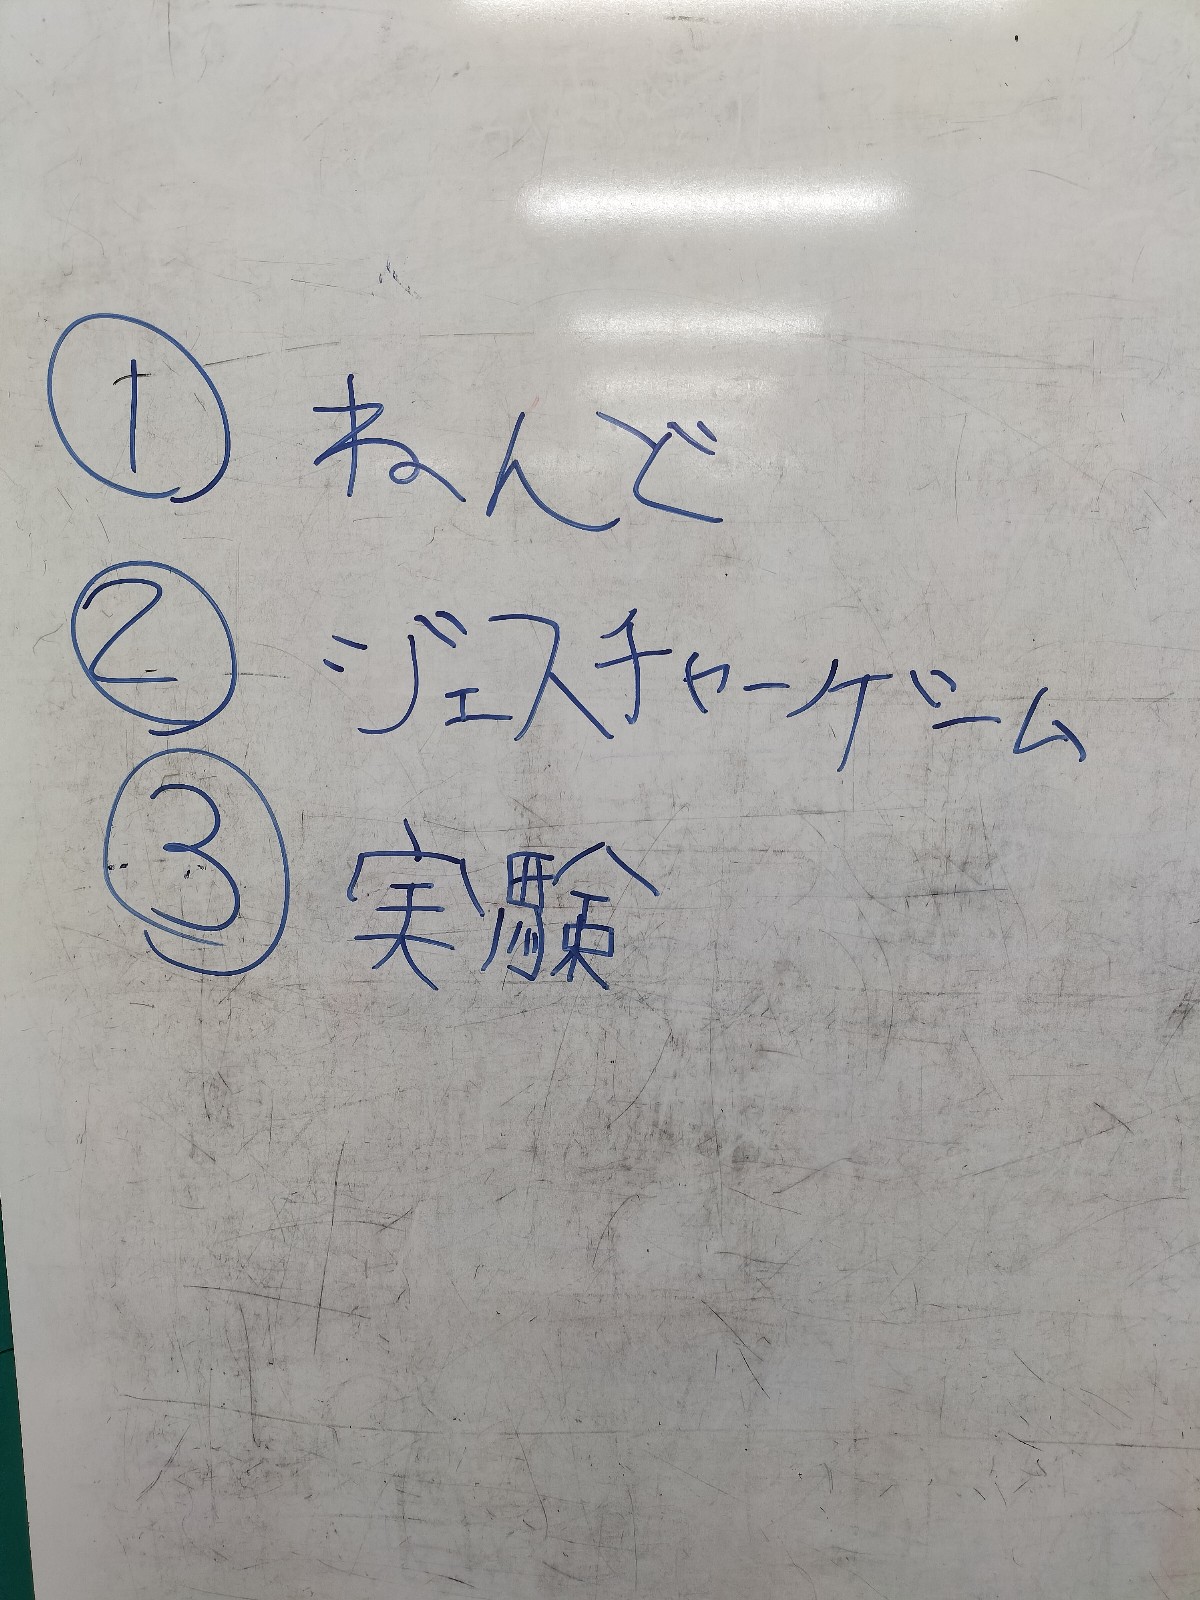 ① ねんど
② ジェスチャーゲーム
③ 実験